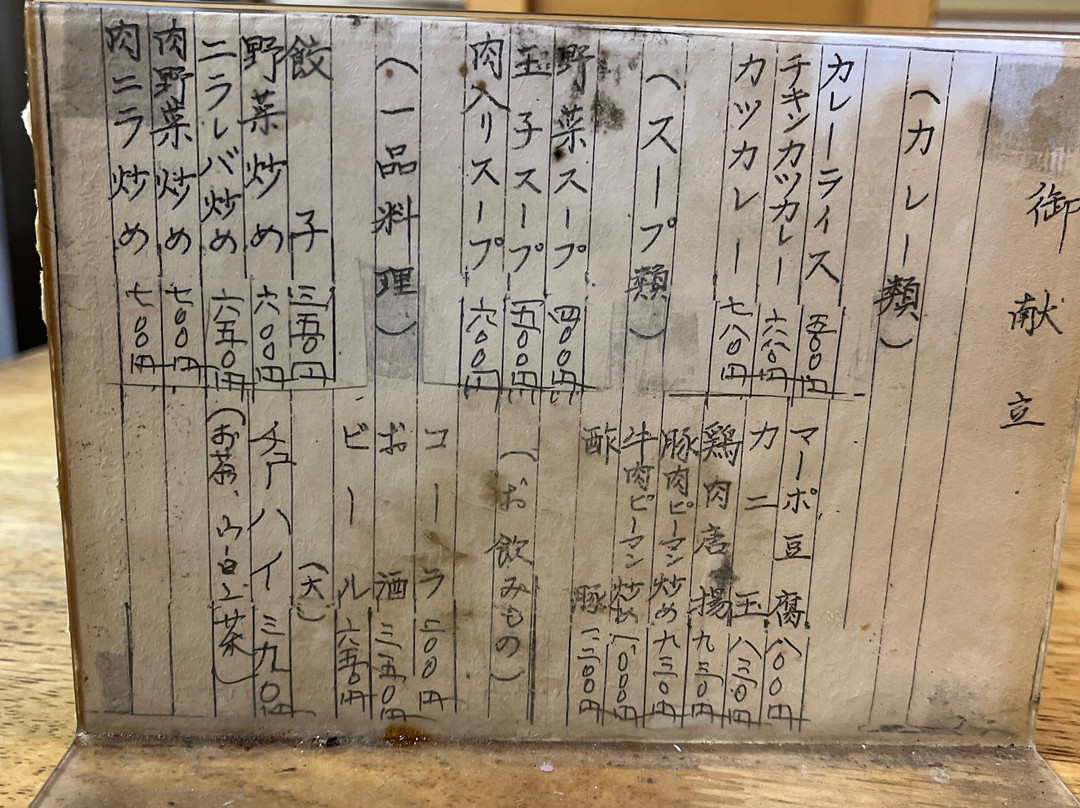 御献立
(カレー類)
カレーライス 五五〇円
チキンカツカレー 六八〇円
カツカレー 七八〇円
(スープ類)
野菜スープ 四〇〇円
玉子スープ 五〇〇円
肉入リスープ 六〇〇円
(一品料理)
餃子 三五〇円
野菜炒め 六〇〇円
ニラレバ炒め 六五〇円
肉野菜炒め 七〇〇円
肉ニラ炒め 七〇〇円
マーボ豆腐 八〇〇円
カニ玉 八三〇円
鶏肉唐揚 九三〇円
豚肉ピーマン炒め 九三〇円
牛肉ピーマン炒め 一、〇〇〇円
酢豚 一二〇〇円
(お飲みもの)
コーラ 二〇〇円
お酒 三五〇円
ビール(大) 六五〇円
チューハイ 三九〇円
(お茶、ウーロン茶)